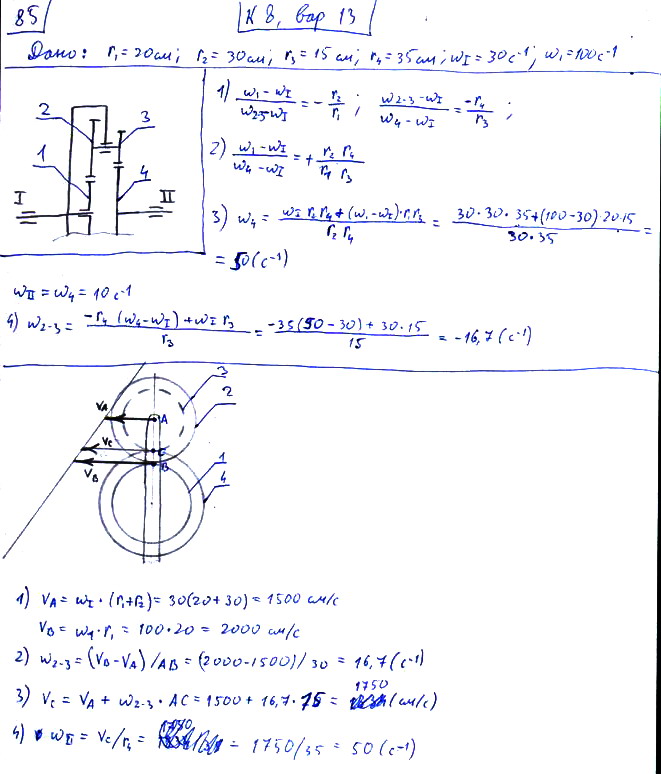 85
К 8, вар 13
Дано: r₁=20см; r₂=30см; r₃=15см; r₄=35см; ωI=30с⁻¹; ω₁=100с⁻¹
1) (ω₁-ωI)/(ω23-ωI) = - r₂/r₁ ; (ω2-3-ωI)/(ω4-ωI) = -r₄/r₃ ;
2) (ω₁-ωI)/(ω4-ωI) = + (r₂ r₄)/(r₁ r₃)
3) ω4 = (ωI r₂ r₄ + (ω₁-ωI)·r₁ r₃)/(r₂ r₄) = (30·30·35+(100-30)·20·15)/(30·35) =
= 50 (с⁻¹)
2
3
1
4
I
II
ωII = ω4 = 10 с⁻¹
4) ω2-3 = (-r₄ (ω4-ωI) + ωI r₃)/r₃ = (-35(50-30) + 30·15)/15 = -16,7 (с⁻¹)
3
2
VA
A
VC
C
B
VB
1
4
1) VA = ωI · (r₁+r₂) = 30(20+30) = 1500 см/с
VB = ω1·r₁ = 100·20 = 2000 см/с
2) ω2-3 = (VB-VA)/AB = (2000-1500)/30 = 16,7 (с⁻¹)
3) VC = VA + ω2-3 · AC = 1500 + 16,7·15 = 1750 (см/с)
4) ωII = VC/r₄ = 1750/35 = 50 (с⁻¹)